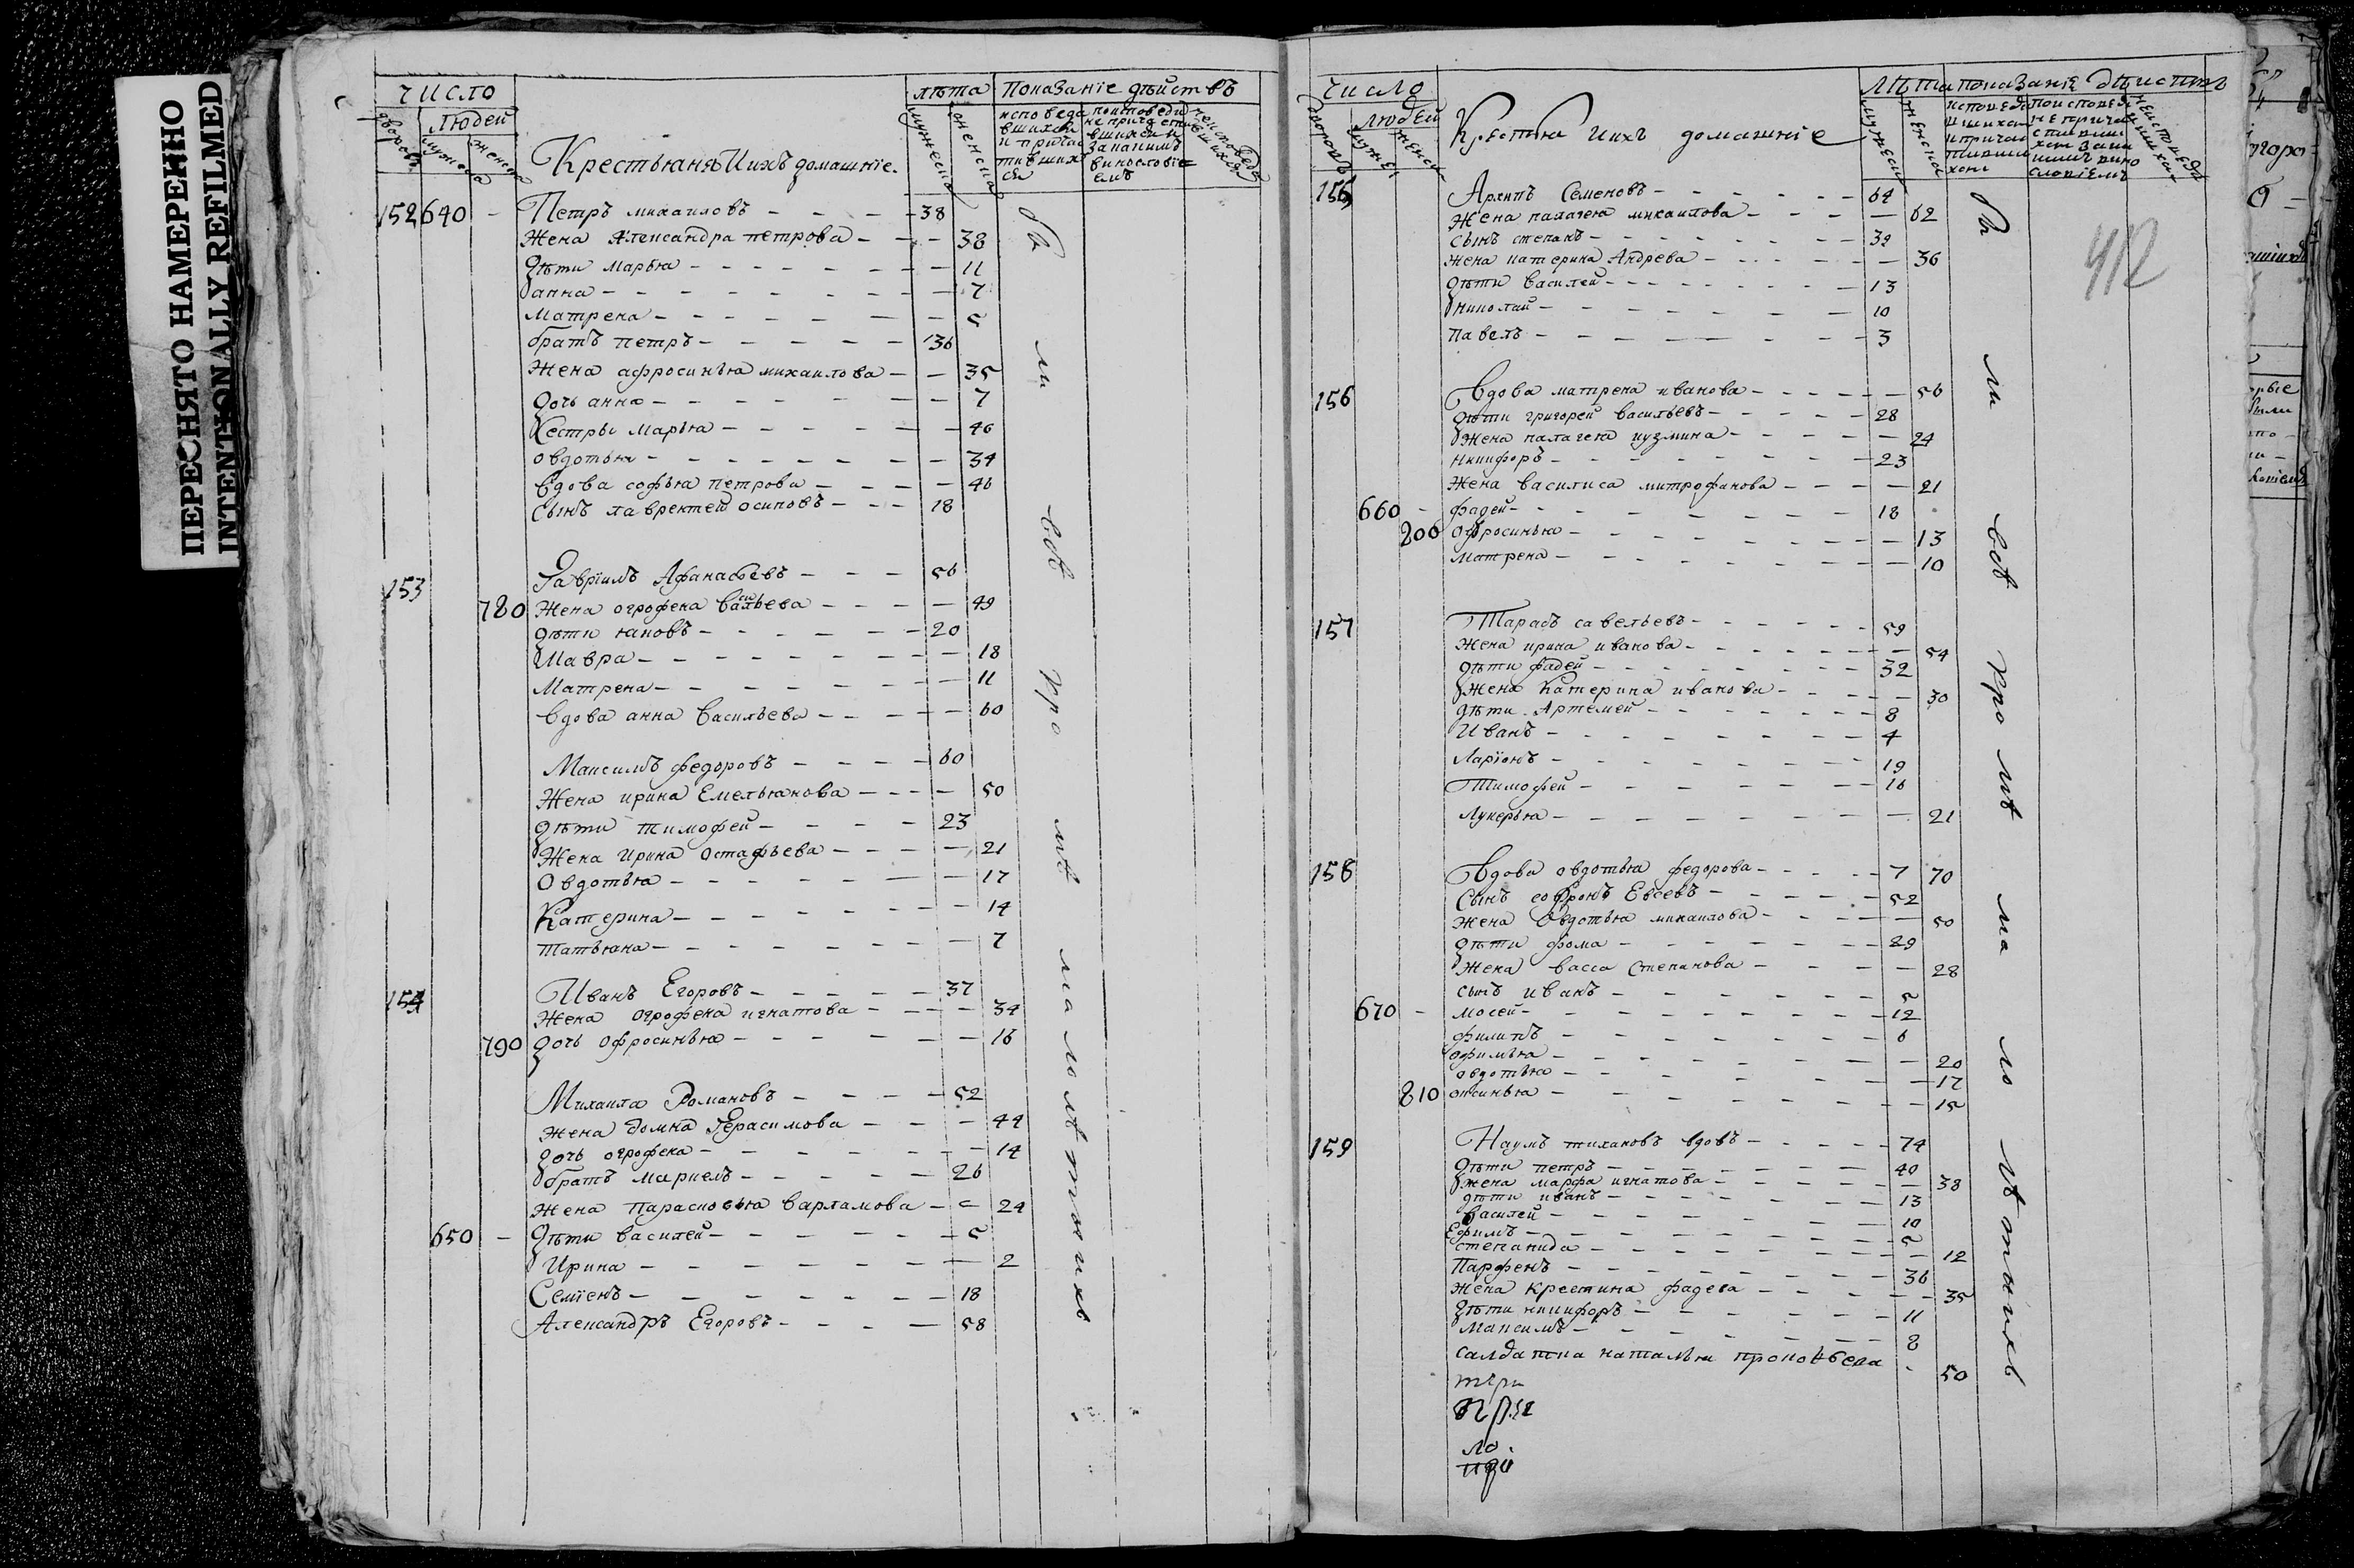 ПЕРЕСНЯТО НАМЕРЕННО
INTENTIONALLY REFILMED
число
людей
дворовъ
мужеска
женска
Крестьяня Ихъ домашніе.
лѣта
мужеска
женска
Показаніе дѣйствъ
исповеда
вшихся
и причас
тивших
ся
152 640 - Петръ михаиловъ - 38
Жена Александра петрова - 38
дѣти марья - 11
анна - 7
Матрена - 5
братъ петръ - 36
Жена афросинья михаилова - 35
дочь анна - 7
Сестры Марья - 40
овдотья - 34
вдова софья петрова - 46
Сынъ лаврентей осиповъ - 18
153 Гавріилъ Афанасьевъ - 56
780 Жена огрофена Васильева - 49
дѣти яковъ - 20
Мавра - 18
Матрена - 11
Вдова анна Васильева - 60
Максимъ федоровъ - 60
Жена ирина Емельянова - 50
дѣти тимофей - 23
Жена Ирина Остафьева - 21
Овдотья - 17
Катерина - 14
татьяна - 7
154 Иванъ Егоровъ - 37
Жена огрофена игнатова - 34
790 дочь офросинья - 16
Михаила Романовъ - 52
Жена домна Герасимова - 44
дочь огрофена - 14
братъ маркелъ - 26
Жена Парасковья Варламова - 24
650 - дѣти василей - 5
Ирина - 2
Семіенъ - 18
Александръ Егоровъ - 58
Были всѣ кромѣ малолѣтныхъ
число
людей
дворовъ
мужес
женск
Крестья Ихъ домашніе
Лѣта
показаніе дѣиствъ
155 Архипъ Семеновъ - 64
Жена палагея михаилова - 62
сынъ степанъ - 39
жена катерина Андрева - 36
дѣти василей - 13
николай - 10
павелъ - 3
412
156 Вдова матрена иванова - 56
дѣти григорей васильевъ - 28
жена палагея кузмина - 24
никифоръ - 23
Жена василиса митрофанова - 21
660 - фадей - 18
800 Офросинья - 13
матрена - 10
157 Тарасъ савельевъ - 59
Жена ирина иванова - 54
дѣти фадей - 32
Жена Катерина иванова - 30
дѣти Артемей - 8
Иванъ - 4
Ларіонъ - 19
Тимофей - 16
Лукерья - 21
158 Вдова овдотья федорова - 7 70
Сынъ софронъ Евсевъ - 52
Жена Овдотья михаилова - 50
дѣти фома - 29
Жена васса Степанова - 28
сынъ иванъ - 5
670 - мосей - 12
филипъ - 6
офимья - 20
овдотья - 17
810 оксинья - 15
159 Наумъ тихановъ вдовъ - 74
дѣти петръ - 40
жена марфа игнатова - 38
дѣти иванъ - 13
василей - 10
Ефимъ - 5
степанида - 12
Парфенъ - 36
Жена крестина фадева - 35
дѣти никифоръ - 11
Максимъ - 8
салдатка наталья прокофьева - 50
Были всѣ кромѣ малолѣтныхъ